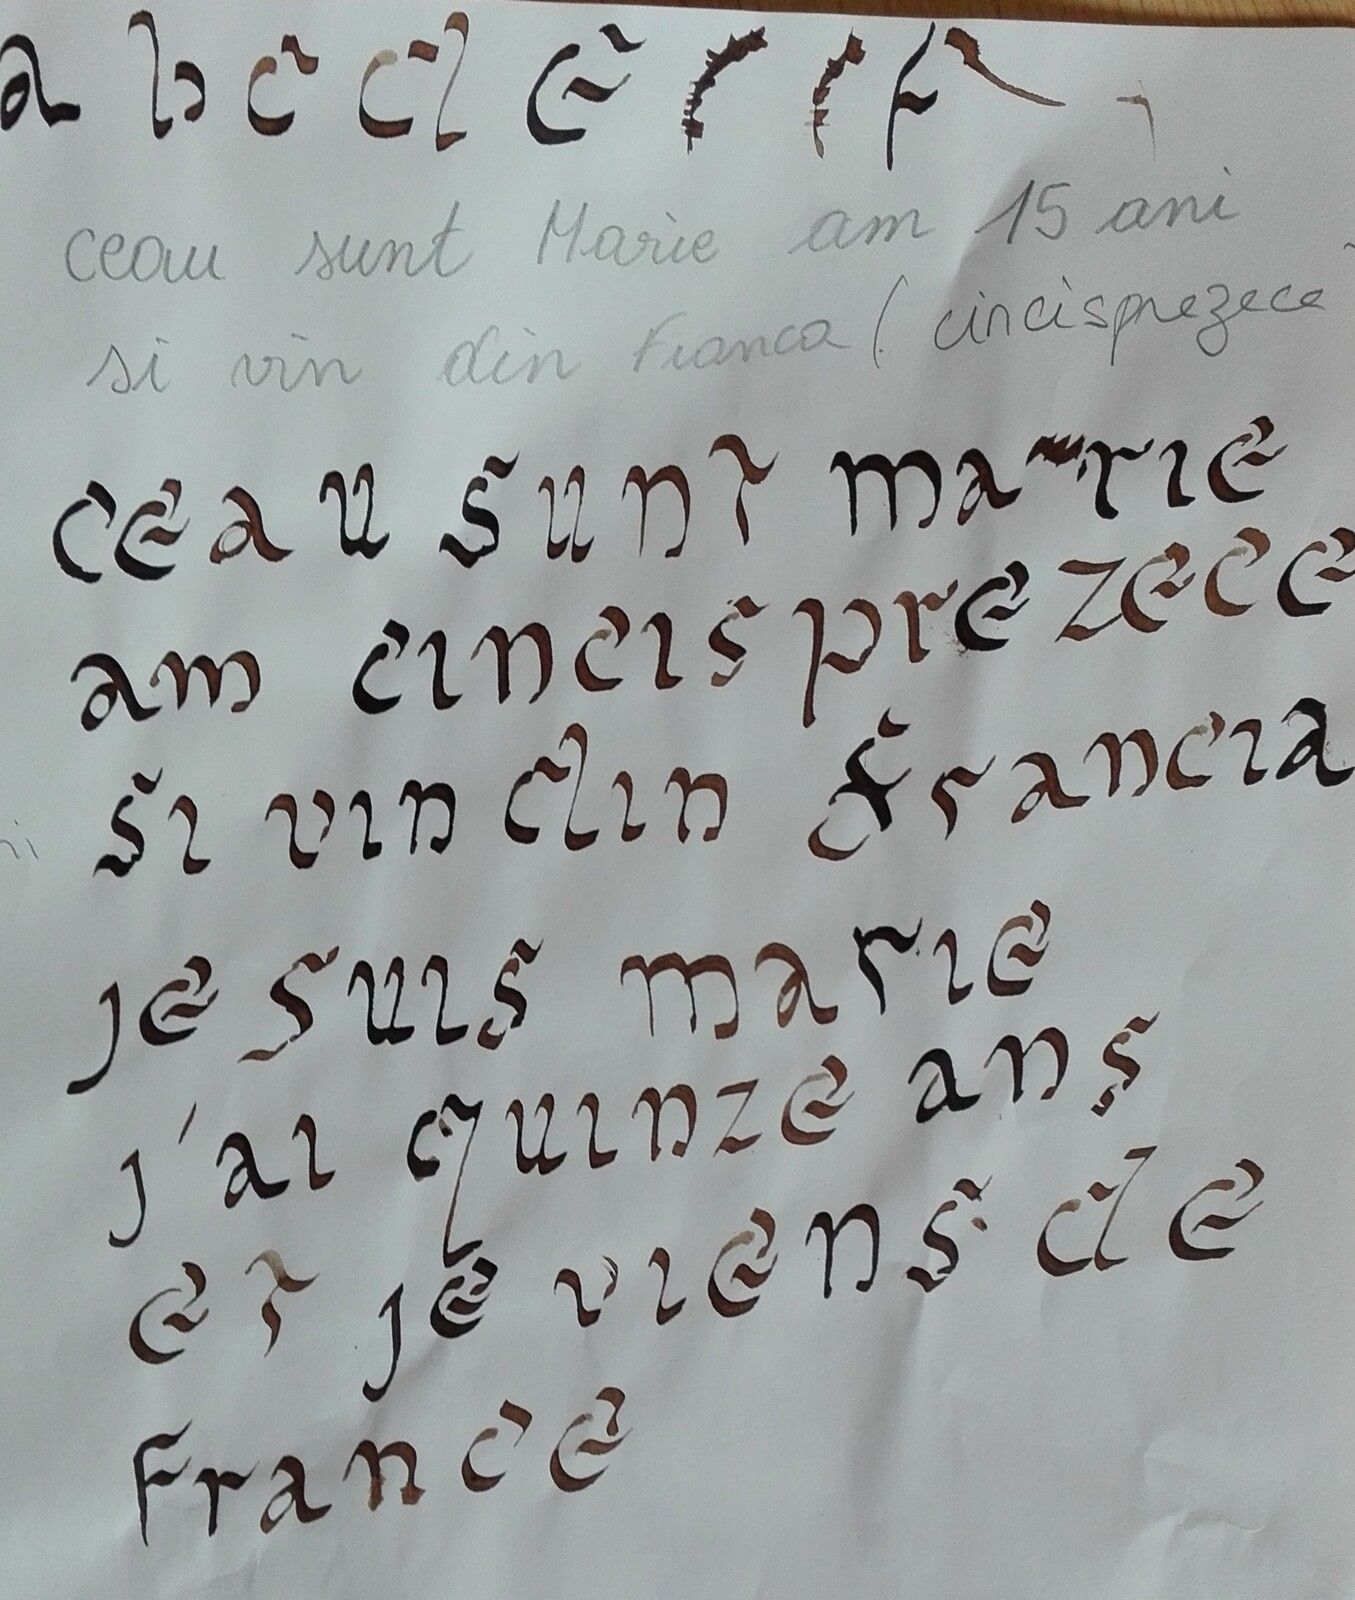 a b c d e f f f
ceau sunt Marie am 15 ani
si vin din Franca ( cincisprezece
ceau sunt marie
am cincisprezece
si vin din francia
je suis marie
j'ai quinze ans
et je viens de
france